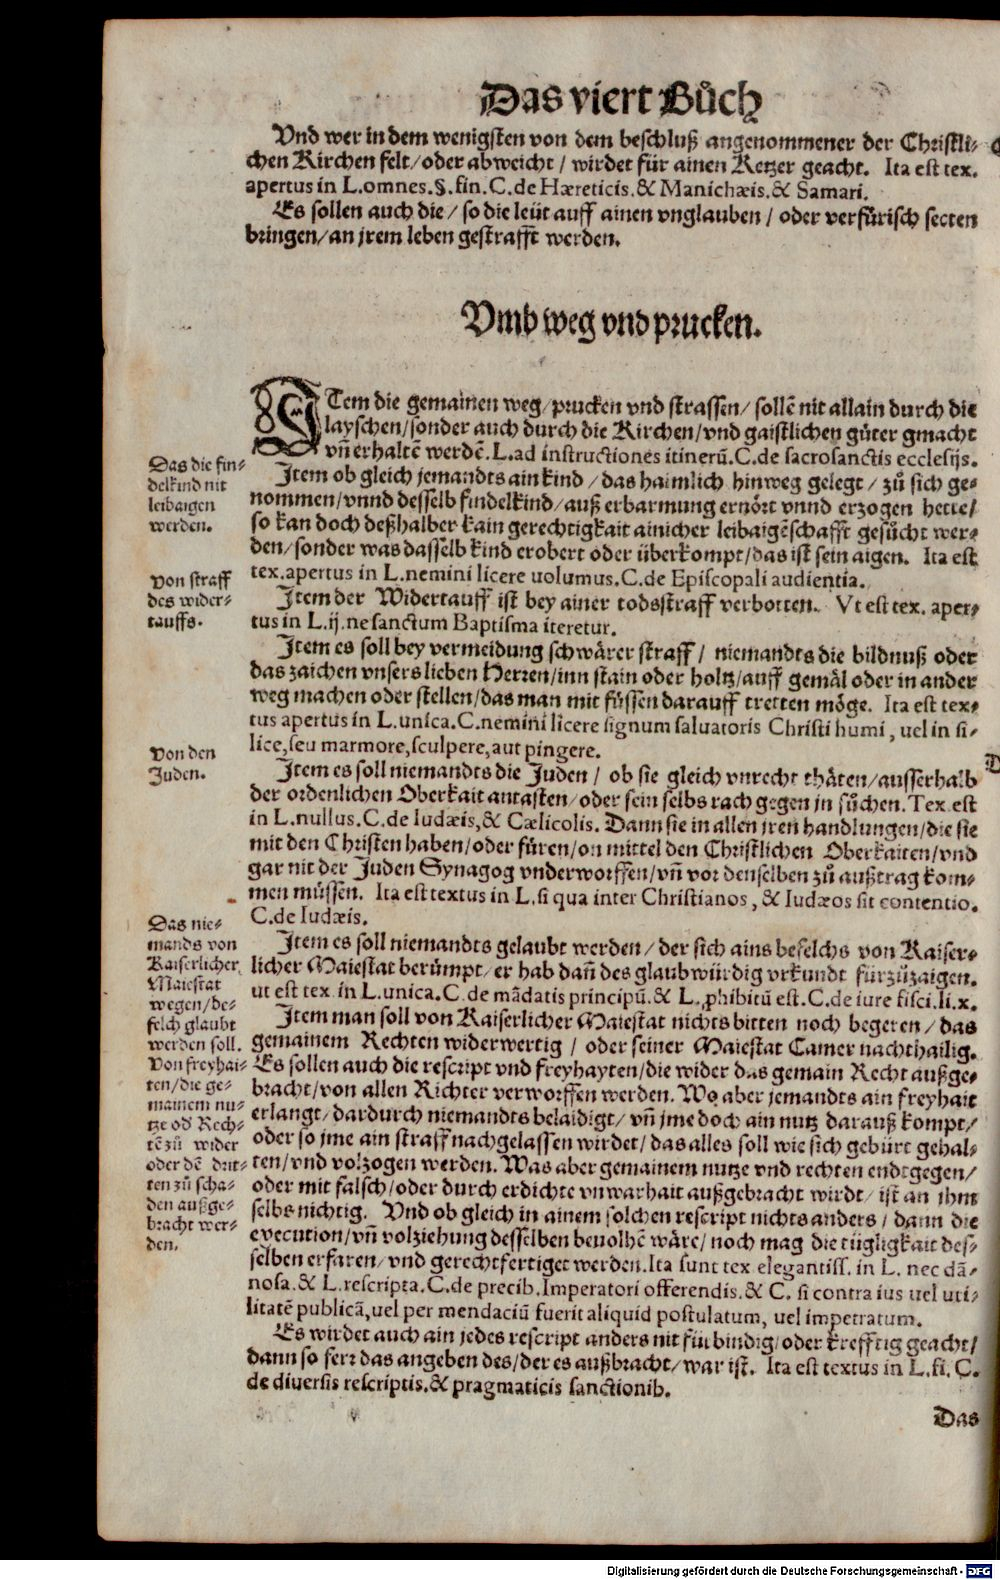 Das viert Bůch
Vnd wer in dem wenigsten von dem beschluß angenommener der Christli-
chen Kirchen felt/ oder abweicht / wirdet für ainen Ketzer geacht. Ita est tex.
apertus in L.omnes.§.fin.C.de Hæreticis.& Manichæis.& Samari.
Es sollen auch die / so die leüt auff ainen vnglauben / oder verfürisch secten
bringen/ an jrem leben gestrafft werden.
Vmb weg vnd prucken.
ITem die gemainen weg/ prucken vnd strassen/ sollē nit allain durch die
layschen/ sonder auch durch die Kirchen/ vnd gaistlichen gůter gmacht
vn̄ erhaltē werdē. L.ad instructiones itinerū.C.de sacrosanctis ecclesijs.
Das die fin-
delkind nit
leibaigen
werden.
Item ob gleich jemandts ain kind / das haimlich hinweg gelegt / zů sich ge-
nommen/ vnnd desselb findelkind/ auß erbarmung ernört vnnd erzogen hette/
so kan doch deßhalber kain gerechtigkait ainicher leibaigēschafft gesůcht wer-
den/ sonder was dasselb kind erobert oder überkompt/ das ist sein aigen. Ita est
tex.apertus in L.nemini licere uolumus.C.de Episcopali audientia.
Von straff
des wider-
tauffs.
Item der Widertauff ist bey ainer todsstraff verbotten. Vt est tex. aper-
tus in L.ij.ne sanctum Baptisma iteretur.
Item es soll bey vermeidung schwärer straff / niemandts die bildnuß oder
das zaichen vnsers lieben Herzen/ inn stain oder holtz/ auff gemäl oder in ander
weg machen oder stellen/ das man mit füssen darauff tretten möge. Ita est tex-
tus apertus in L.unica.C.nemini licere signum saluatoris Christi humi, uel in si-
lice, seu marmore, sculpere, aut pingere.
Von den
Juden.
Item es soll niemandts die Juden / ob sie gleich vnrecht thäten/ ausserhalb
der ordenlichen Oberkait antasten/ oder sein selbs rach gegen jn sůchen. Tex.est
in L.nullus.C.de Iudæis, & Cælicolis. Dann sie in allen jren handlungen/ die sie
mit den Christen haben/ oder füren/ on mittel den Christlichen Oberkaiten/ vnd
gar nit der Juden Synagog vnderworffen/ vn̄ vor denselben zů außtrag kom-
men müssen. Ita est textus in L.si qua inter Christianos, & Iudæos sit contentio.
C.de Iudæis.
Das nie-
mands von
Kaiserlicher
Maiestat
wegen/ be-
felch glaubt
werden soll.
Item es soll niemandts gelaubt werden / der sich ains befelchs von Kaiser-
licher Maiestat berümpt/ er hab dan̄ des glaubwürdig vrkundt fürzůzaigen.
ut est tex in L.unica.C.de mādatis principū.& L.ꝓhibitū est.C.de iure fisci.li.x.
Item man soll von Kaiserlicher Maiestat nichts bitten noch begeren / das
gemainem Rechten widerwertig / oder seiner Maiestat Camer nachthailig.
Von freyhai-
ten/ die ge-
mainem nu-
tze od Rech-
tē zů wider
oder dē drit-
ten zů scha-
den außge-
bracht wer-
den.
Es sollen auch die rescript vnd freyhayten/ die wider das gemain Recht außge-
bracht/ von allen Richter verworffen werden. Wo aber jemandts ain freyhait
erlangt/ dardurch niemandts belaidigt/ vn̄ jme doch ain nutz darauß kompt/
oder so jme ain straff nachgelassen wirdet/ das alles soll wie sich gebürt gehal-
ten/ vnd volzogen werden. Was aber gemainem nutze vnd rechten endtgegen/
oder mit falsch/ oder durch erdichte vnwarhait außgebracht wirdt/ ist an ihm
selbs nichtig. Vnd ob gleich in ainem solchen rescript nichts anders / dann die
execution/ vn̄ volziehung desselben beuolhē wäre/ noch mag die tügligkait des-
selben erfaren/ vnd gerechtfertiget werden. Ita sunt tex elegantiss. in L. nec dā-
nosa.& L.rescripta.C.de precib.Imperatori offerendis.& C. si contra ius uel uti-
litatē publicā, uel per mendaciū fuerit aliquid postulatum, uel impetratum.
Es wirdet auch ain jedes rescript anders nit für bindig/ oder krefftig geacht/
dann so ferz das angeben des/ der es außbracht/ war ist. Ita est textus in L.fi. C.
de diuersis rescriptis.& pragmaticis sanctionib.
Das
Digitalisierung gefördert durch die Deutsche Forschungsgemeinschaft - DFG